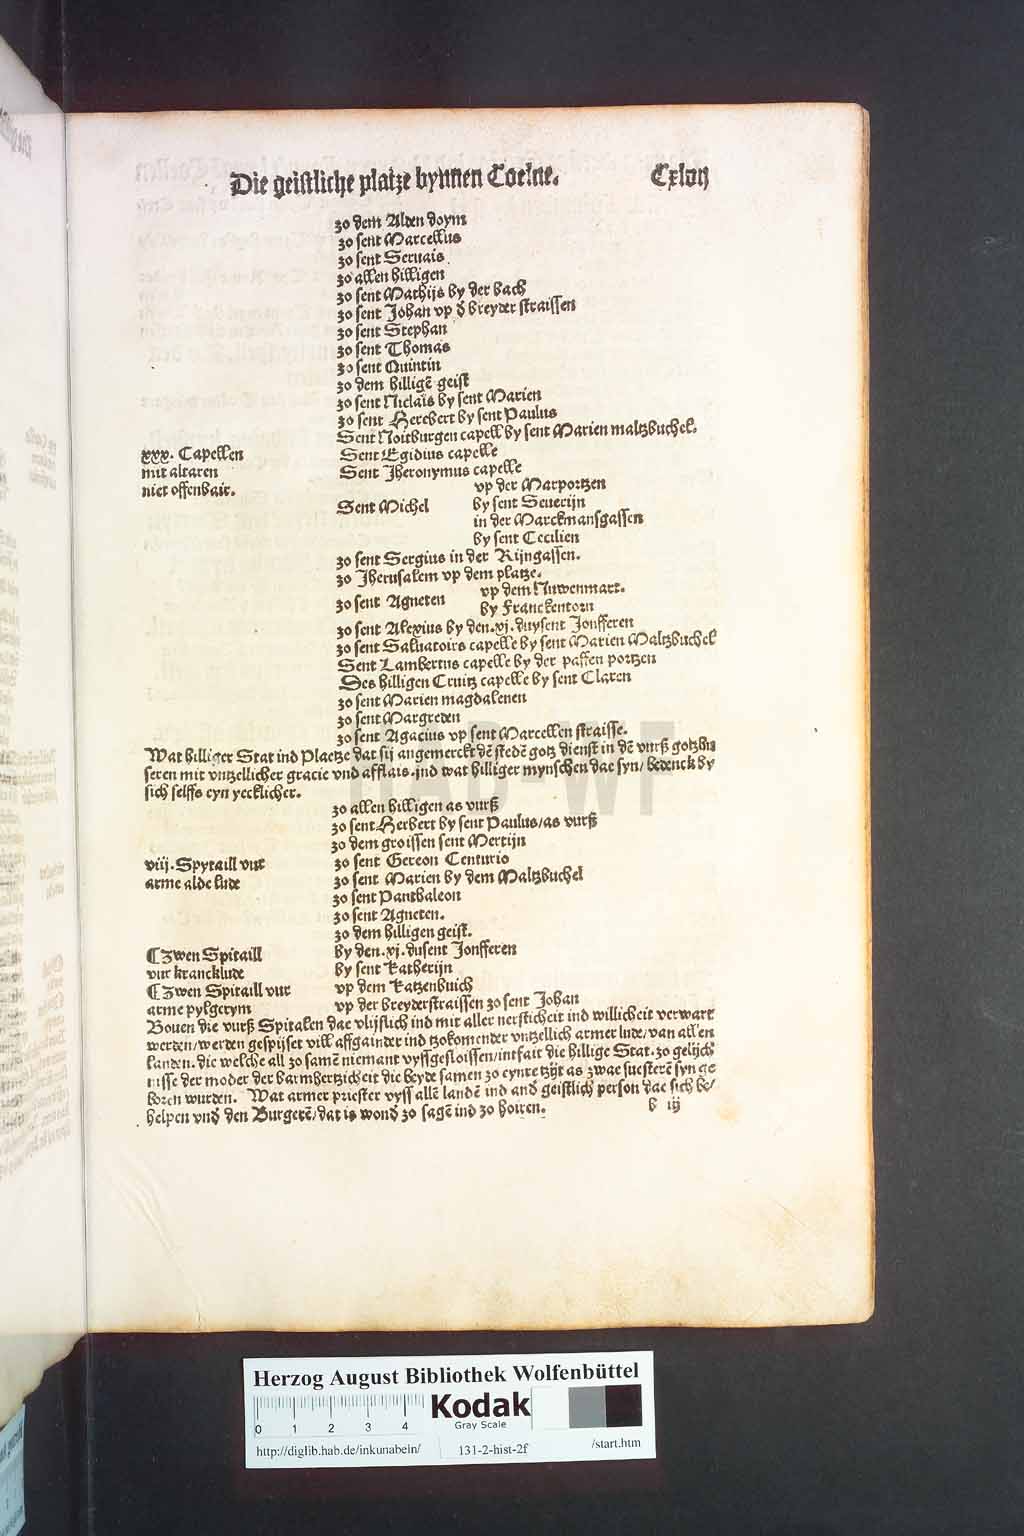 Die geistliche platze bynnen Coelne. Cxlvij
zo dem Alden doym
zo sent Marcellus
zo sent Seruais
zo allen hilligen
zo sent Mathijs by der bach
zo sent Johan vp d̕ breyder straissen
zo sent Stephan
zo sent Thomas
zo sent Quintin
zo dem hilligẽ geist
zo sent Niclais by sent Marien
zo sent Herebert by sent Paulus
Sent Noitburgen capell by sent Marien maltzbuchel.
xxx. Capellen Sent Egidius capelle
mit altaren Sent Jheronymus capelle
niet offenbair. vp der Marportzen
Sent Michel by sent Seuerijn
in der Marckmansgassen
by sent Cecilien
zo sent Sergius in der Rijngassen.
zo Jherusalem vp dem platze.
zo sent Agneten vp dem Nuwenmart.
by Franckentorn
zo sent Alexius by den.xj.duysent Jonfferen
zo sent Saluatoirs capelle by sent Marien Maltzbuchel
Sent Lambertus capelle by der paffen portzen
Des hilligen Cruitz capelle by sent Claren
zo sent Marien magdalenen
zo sent Margreden
zo sent Agacius vp sent Marcellen straisse.
Wat hilliger Stat ind Plaetze dat sij angemerckt dẽ stedẽ gotz dienst in dẽ vurß gotzhu
seren mit vntzellicher gracie vnd afflais.jnd wat hilliger mynschen dae syn/ bedenck by
sich selffs eyn yecklicher.
zo allen hilligen as vurß
zo sent Herbert by sent Paulus/as vurß
zo dem groissen sent Mertijn
viij.Spytaill vur zo sent Gereon Centurio
arme alde lude zo sent Marien by dem Maltzbuchel
zo sent Panthaleon
zo sent Agneten.
zo dem hilligen geist.
¶Zwen Spitaill by den.xj.dusent Jonfferen
vur krancklude by sent Katherijn
¶Zwen Spitaill vur vp dem Katzenbuich
arme pylgerym vp der breyderstraissen zo sent Johan
Bouen die vurß Spitalen dae vlijslich ind mit aller nersticheit ind willicheit verwart
werden/werden gespijset vill affgainder ind tzokomender vntzellich armer lude/van allen
landen.die welche all zo samẽ niemant vyssgesloissen/intfait die hillige Stat.zo gelijch
nisse der moder der barmhertzicheit die beyde samen zo eynre tzijt as zwae suesterẽ syn ge
boren wurden. Wat armer priester vyss allẽ landẽ ind and̕ geistlich person dae sich be/
helpen vnd̕ den Burgerẽ/dat is wond̕ zo sagẽ ind zo hoiren. b iij
Herzog August Bibliothek Wolfenbüttel
0 1 2 3 4 Kodak
Gray Scale
http://diglib.hab.de/inkunabeln/ 131-2-hist-2f /start.htm
HAB-WF